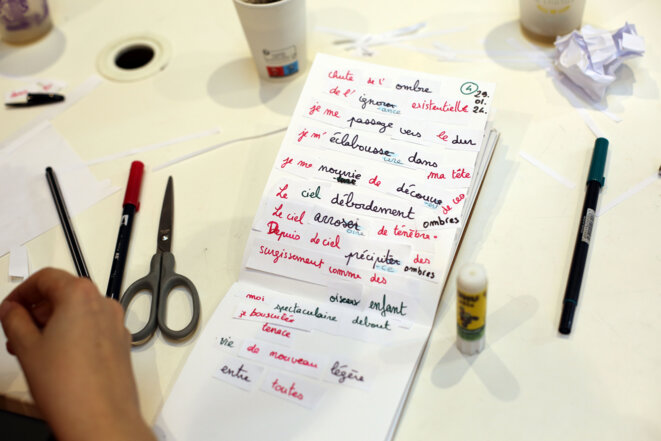 chute de l' ombre
④ 29.
01.
24.
de l' ignorance existentielle
je me passage vers le dur
je m' éclabousse dans ma tête
je me nourrie de découvre de ces
Le ciel débordement ombres
Le ciel arroser de ténèbre.
Depuis le ciel précipite des
surgissement comme des ombres
moi oiseau enfant
spectaculaire debout
je bousculée
tenace
vie de nouveau légère
entre toutes